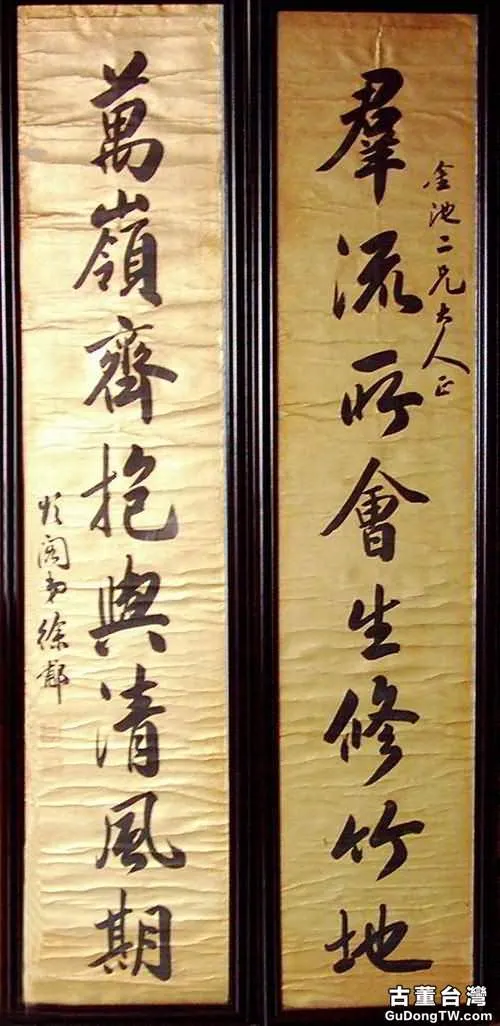 金池二兄大人正
羣流所會生修竹地
萬嶺齊抱與清風期
頌閣弟徐郙
古董台灣
GuDongTW.com